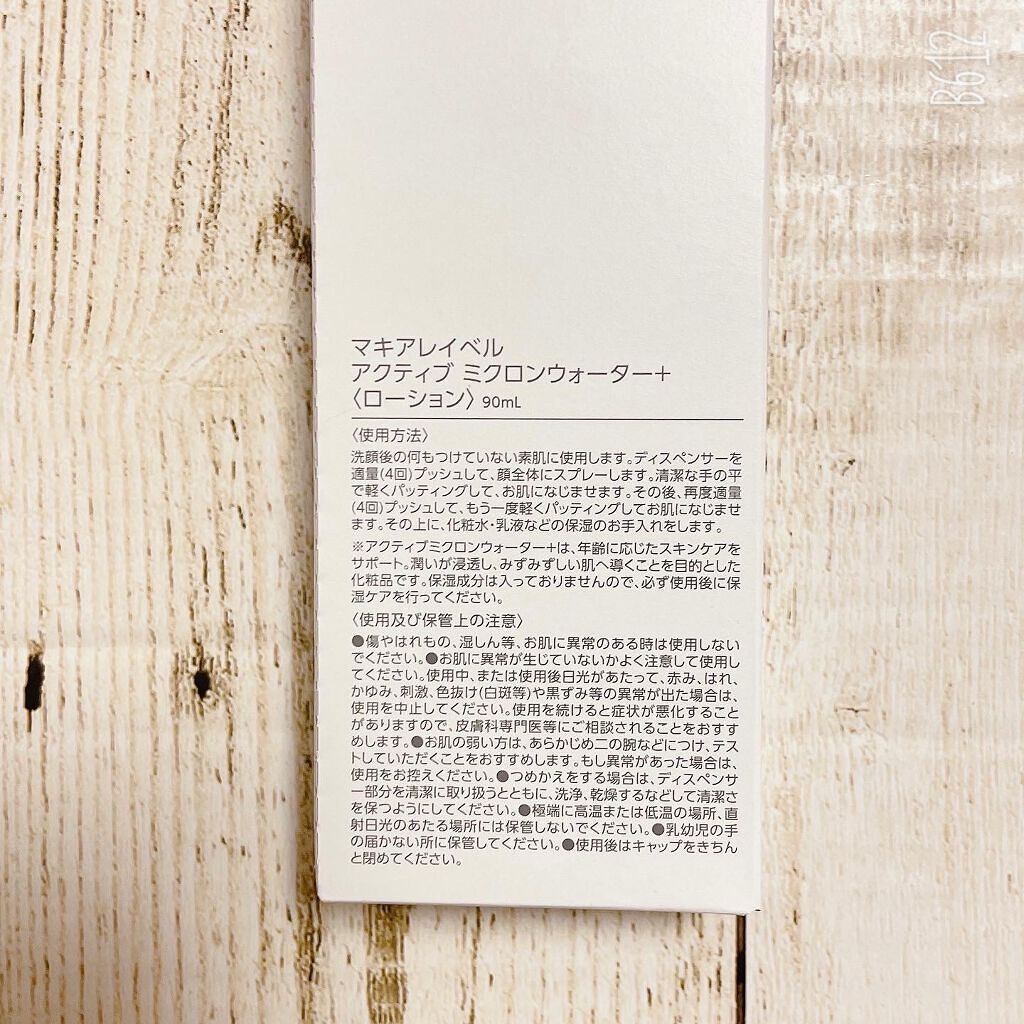 B612
マキアレイベル
アクティブ ミクロンウォーター＋
〈ローション〉 90mL
〈使用方法〉
洗顔後の何もつけていない素肌に使用します。ディスペンサーを
適量(4回)プッシュして、顔全体にスプレーします。清潔な手の平
で軽くパッティングして、お肌になじませます。その後、再度適量
(4回)プッシュして、もう一度軽くパッティングしてお肌になじませ
ます。その上に、化粧水・乳液などの保湿のお手入れをします。
※アクティブミクロンウォーター＋は、年齢に応じたスキンケアを
サポート。潤いが浸透し、みずみずしい肌へ導くことを目的とした
化粧品です。保湿成分は入っておりませんので、必ず使用後に保
湿ケアを行ってください。
〈使用及び保管上の注意〉
●傷やはれもの、湿しん等、お肌に異常のある時は使用しない
でください。●お肌に異常が生じていないかよく注意して使用し
てください。使用中、または使用後日光があたって、赤み、はれ、
かゆみ、刺激、色抜け(白斑等)や黒ずみ等の異常が出た場合は、
使用を中止してください。使用を続けると症状が悪化すること
がありますので、皮膚科専門医等にご相談されることをおすす
めします。●お肌の弱い方は、あらかじめ二の腕などにつけ、テス
トしていただくことをおすすめします。もし異常があった場合は、
使用をお控えください。●つめかえをする場合は、ディスペンサ
ー部分を清潔に取り扱うとともに、洗浄、乾燥するなどして清潔さ
を保つようにしてください。●極端に高温または低温の場所、直
射日光のあたる場所には保管しないでください。●乳幼児の手
の届かない所に保管してください。●使用後はキャップをきちん
と閉めてください。